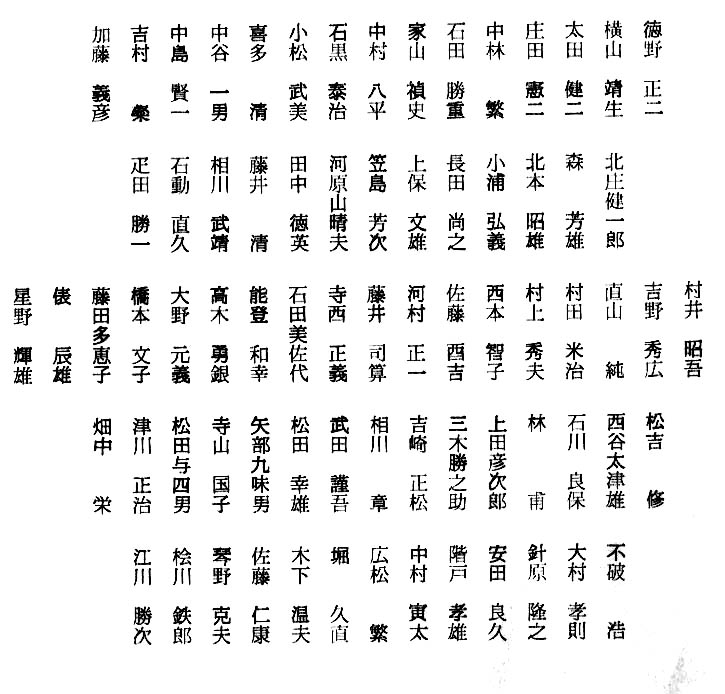 徳野 正二
横山 靖生
太田 健二
庄田 憲二
中林 繁
石田 勝重
家山 禎史
中村 八平
石黒 泰治
小松 武美
喜多 清
中谷 一男
中島 賢一
吉村 榮
加藤 義彦
北庄健一郎
森 芳雄
北本 昭雄
小浦 弘義
長田 尚之
上保 文雄
笠島 芳次
河原山晴夫
田中 徳英
藤井 清
相川 武靖
石動 直久
疋田 勝一
村井 昭吾
吉野 秀広
直山 純
村田 米治
村上 秀夫
西本 智子
佐藤 酉吉
河村 正一
藤井 司算
寺西 正義
石田美佐代
能登 和幸
高木 勇銀
大野 元義
橋本 文子
藤田多恵子
俵 辰雄
星野 輝雄
松吉 修
西谷太津雄
石川 良保
林 甫
上田彦次郎
三木勝之助
吉崎 正松
相川 章
武田 謹吾
松田 幸雄
矢部九味男
寺山 国子
松田与四男
津川 正治
畑中 栄
不破 浩
大村 孝則
針原 隆之
安田 良久
階戸 孝雄
中村 寅太
広松 繁
堀 久直
木下 温夫
佐藤 仁康
琴野 克夫
桧川 鉄郎
江川 勝次